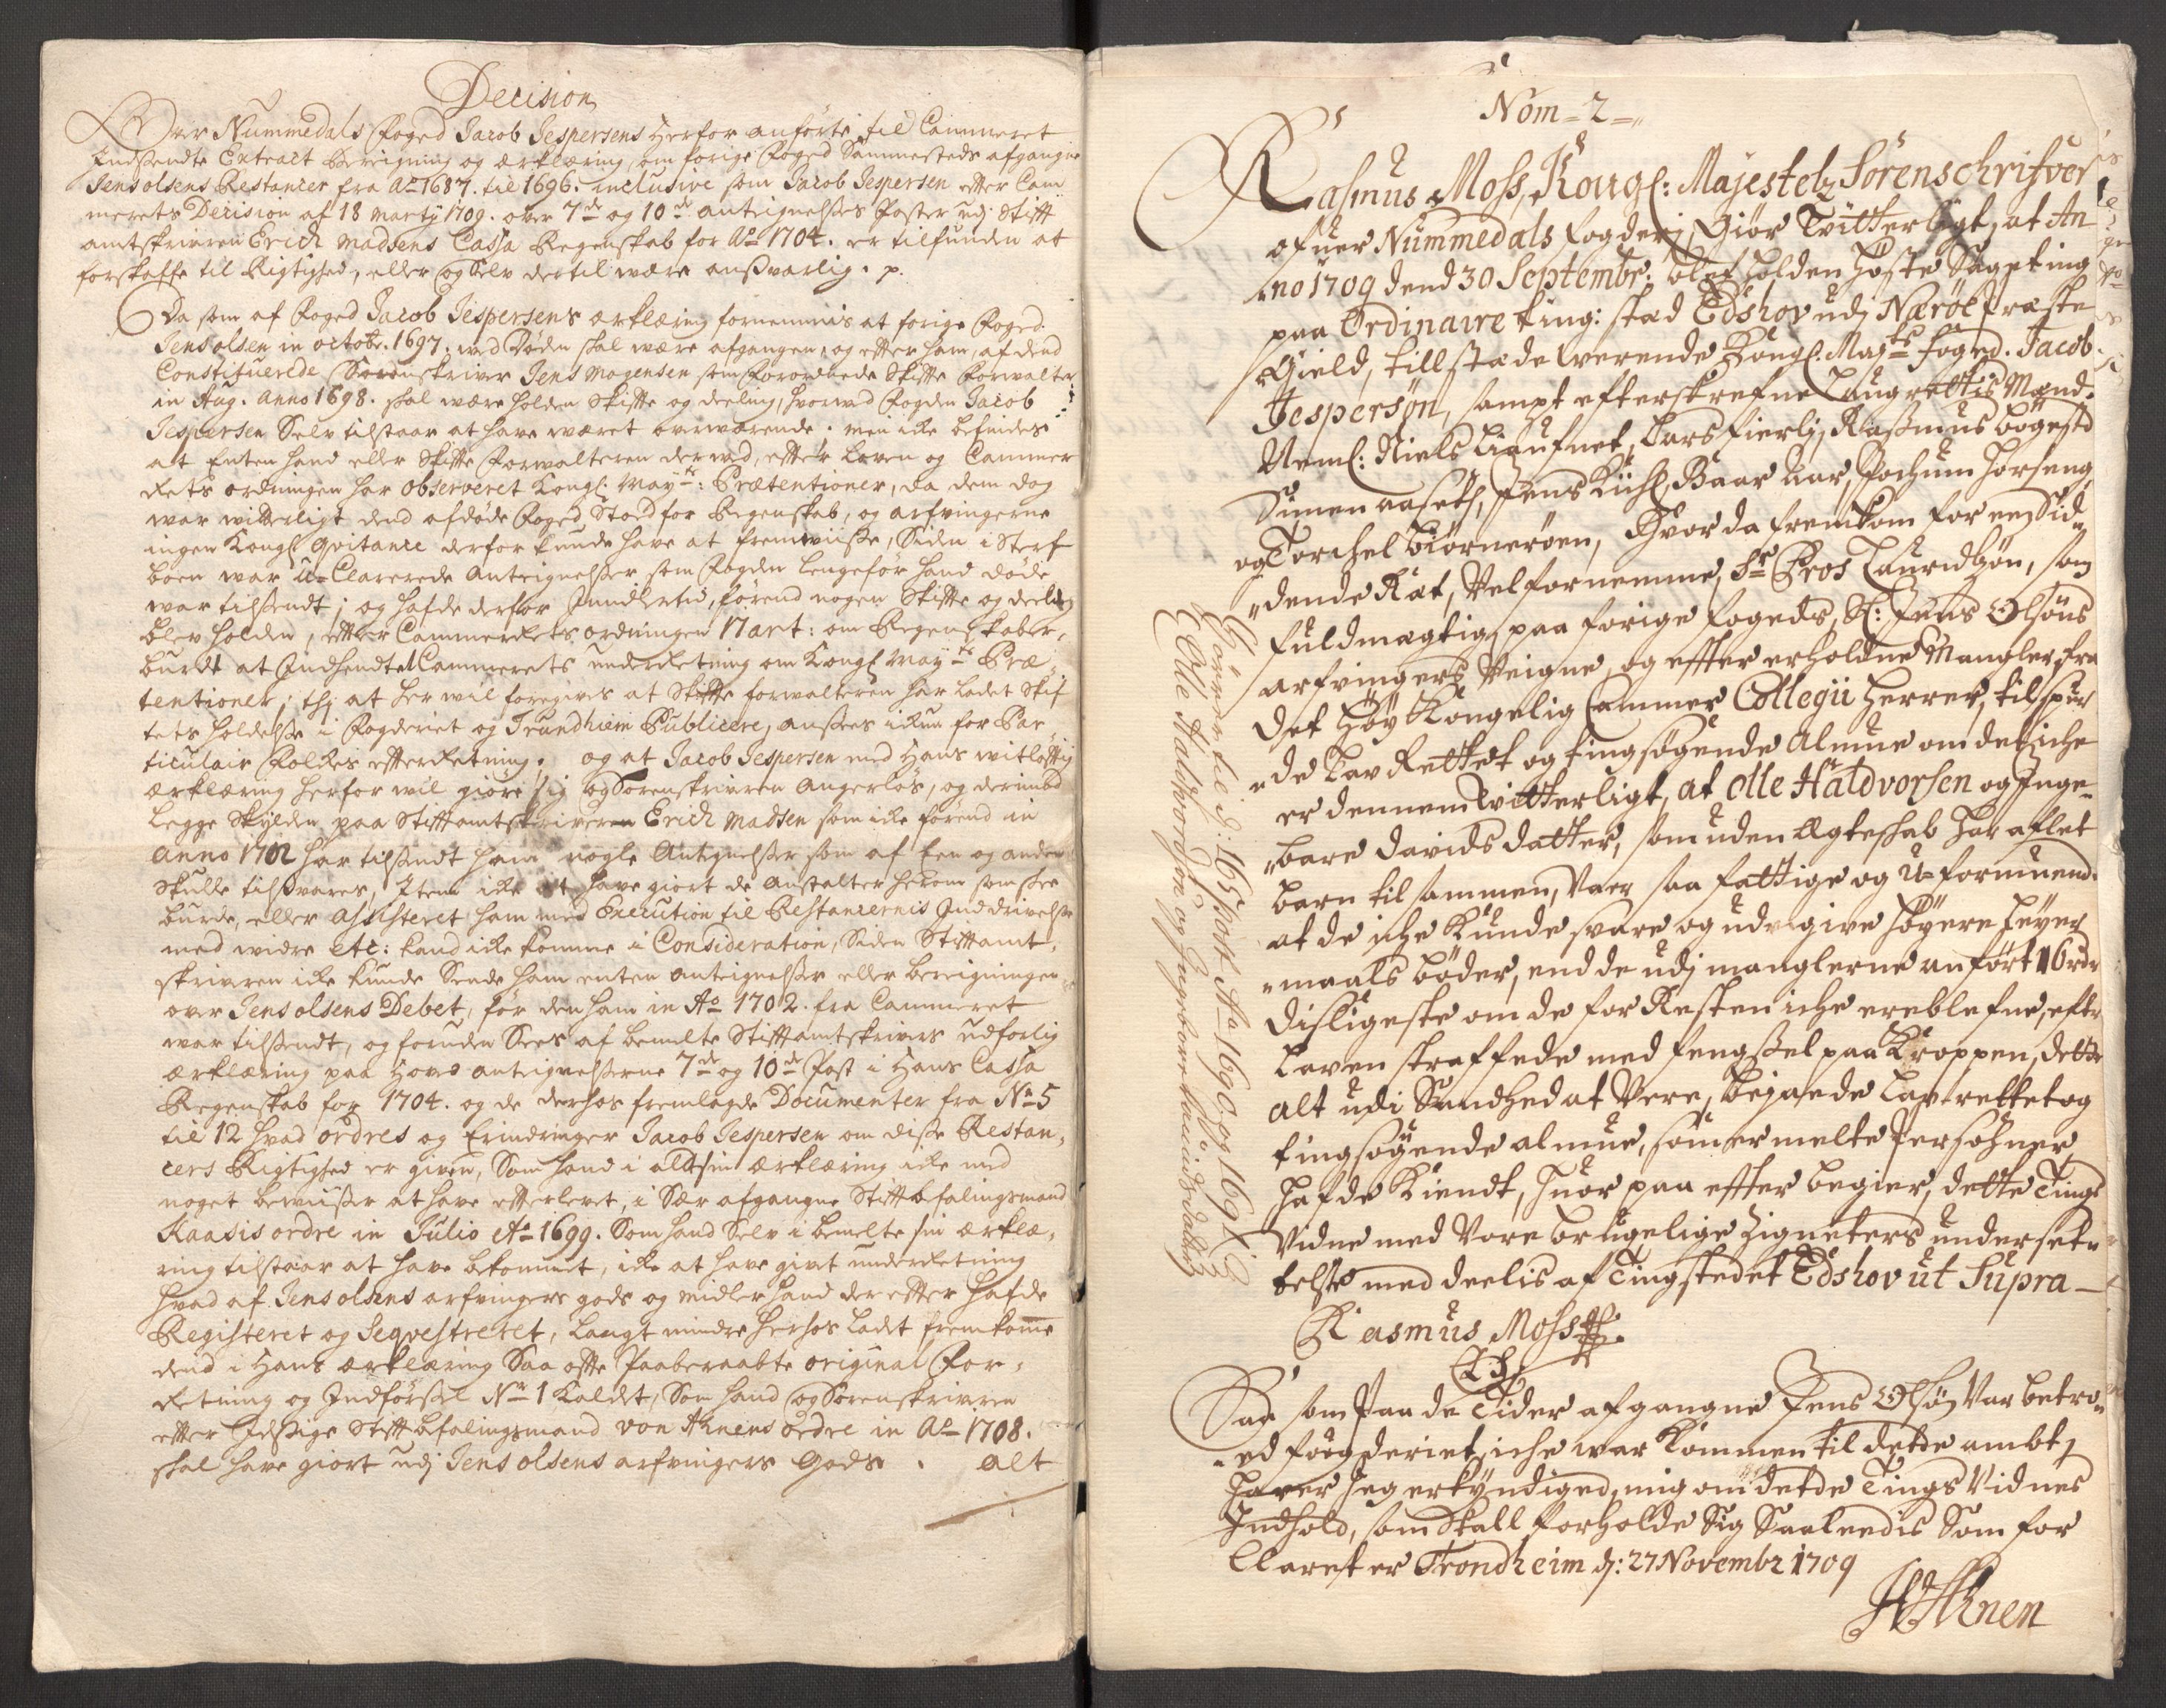 Decision
Over Nummedals Foged Jacob Jespersens herfor anførte til Cammeret
Indsendte Extract Beregning og erklæring om forige Foged Sammesteds afgangne
Jens olsens Restancer fra Ao 1687. til 1696. inclusive som Jacob Jespersen efter Cam
merets Decision af 18 Martij 1709. over 7de og 10de antegnelses Poster udj Stift
amtskriveren Erich Madsens Cassa Regenskab for Ao 1704. er tilfunden at
forskaffe til Rigtighed, eller og selv dertil være ansvarlig. p.
Da som af Foged Jacob Jespersens erklæring fornemmis at forige Foged
Jens olsen in octobr. 1697. ved Døden skal være afgangen, og efter ham, af dend
Constituerede Sorenskriver Jens Mogensen som Forordnede Skifte Forvalter
in Aug. Anno 1698. skal være holden Skifte og deeling, hvorved Fogden Jacob
Jespersen Selv tilstaar at have været overværende. men icke befindes
at Enten hand eller Skifte Forvalteren derved, efter Loven og Cammer
Rets ordningen har observeret Kongl. Mayts: Prætentioner, da dem dog
war witterligt dend afdøde Foged Stoed for Regenskab, og arfvingerne
ingen Kongl Qvitance derfor kunde have at fremvisse, Siden i Sterf
boen war U-Clarerede Antegnelser som Fogden lenge for hand døde
war tilsendt; og hafde derfor Imidlertid, førend nogen Skifte og deeling
blev holden, efter Cammer Retsordningen 17 art: om Regenskaber,
burdt at Indhendte Cammerets underretning om Kongl Mayts Præ-
tentioner; thj at her wil foregives at Skifte forvalteren har ladet Skif
tets holdelse i Fogderiet og Trundhiem Publicere, ansees ickun for Par
ticulair Folkes efterretning; og at Jacob Jespersen med Hans witløftig
erklæring herfor wil giøre sig og Sorenskriveren Angerløs, og derimod
legge Skylden paa Stiftamtskriveren Erich Madsen som icke førend in
Anno 1702 har tilsendt ham nogle Antegnelser som af Een og anden
Skulle tilsvares, Item icke at have giort de Anstalter herom som skee
burde, eller Assisteret ham med Execution til Restancernis Inddrivelse
med widre etc: kand icke komme i Consideration, Siden Stiftamt-
skriveren icke kunde Sende ham enten antegnelser eller beregningen
over Jens olsens Debet, før den ham in Ao 1702. fra Cammeret
war tilsendt, og foruden Sees af bemelte Stiftamtskrivers udførlig
erklæring paa Hovet antegnelserne 7de og 10de Post i Hans Cassa
Regenskab for 1704. og de derhos fremlagde Documenter fra No 5
til 12 hvad ordres og Erindringer Jacob Jespersen om disse Restan-
cers Rigtighed er given, Som hand i altsin erklæring icke med
noget bevisser at have efterlevet, i Sær afgangne Stiftbefalingsmand
Kaasis ordre in Julio Ao 1699. Som hand Selv i bemelte sin erklæ-
ring tilstaar at have bekommet, icke at have givet underretning
hvad af Jens olsens arfvingers gods og midler hand der efter hafde
Registeret og Seqvestreret, langt mindre herhos ladet fremkomme
dend i Hans erklæring Saa ofte Paaberaabte original For-
Retning og Indførsel No 1 kaldet, Som hand og Sorenskriveren
efter Ihensige Stiftbefalingsmand von Ahnens ordre in Ao 1708.
skal have giort udj Jens olsens arfvingers Gods. Alt
Nom=2=
Rasmus Moss, Kongl: Majestetz Sorenschrifver
ofver Nummedals fogderj, Giør Vitterligt, at An
no 1709 dend 30 Septembr: blef holden høste Sageting
paa Ordinaire ting: stæd Edshov udj Nærøe Præste
Gield, till stæde werende Kongl. Maj:ts foged. Jacob
Jespersøn, sampt efterskrefne Laugrettis Mænd.
Neml: Niels Liaufnet, Lars Fierlj, Rasmus bøgestd
Simen aaseth, Jens Kihl, Baar Aar, Jochum Horseng,
og Torchel Biørnerøen, Hvor da fremkom for een Sid-
dende Ræt, Velfornemme Sr. Peros Lauridsøn, som
fuldmægtig paa forige fogeds, Sl: Jens Olsøns
arfvingers Veigne, og efter erholdne Mangler fra
det Høy Kongelig Cammer Collegii Herrer, tilspur
de Lav Rettet og tingsøgende Almue om det iche
er dennem Vitterligt, at Olle Haldvorsen og Inge-
bare Davids datter, som uden Ægteskab har aflet
barn tilsammen, Var saa fattige og U-formuend.
at de iche kunde svare og udvgive høyere Leyer
maals bøder, end de udj manglerne anført 16 rdr
disligeste om de for Resten iche ere blefne, efter
Laven straffede med fengsel paa Kroppen, dette
alt udi Sandhed at Vere, bejaede Lav-rettet og
tingsøgende almue, som ermelte Persohner
hafde Kiendt, huor paa efter begier, dette Tings
Vidne med Vore brugelige Zigneters underset-
telse meddeelis af Tingstedet Edshov ut Supra
Rasmus Moss
LS
Saa som Paa de Tider afgangne Jens Olsøn Var betro-
ed foegderiet, iche war kommen til dette ambt,
haver Jeg erkyndiged, mig om dette Tings Vidnes
Indhold, som Skall forholde Sig Saaleedis Som for
Claret er Trondheim d: 27 Novembr 1709
HvAhnen
Hörer til d: 16 Post Ao 1690 og 1691
Olle Haldvordsøn og Ingebore Davidsdatter